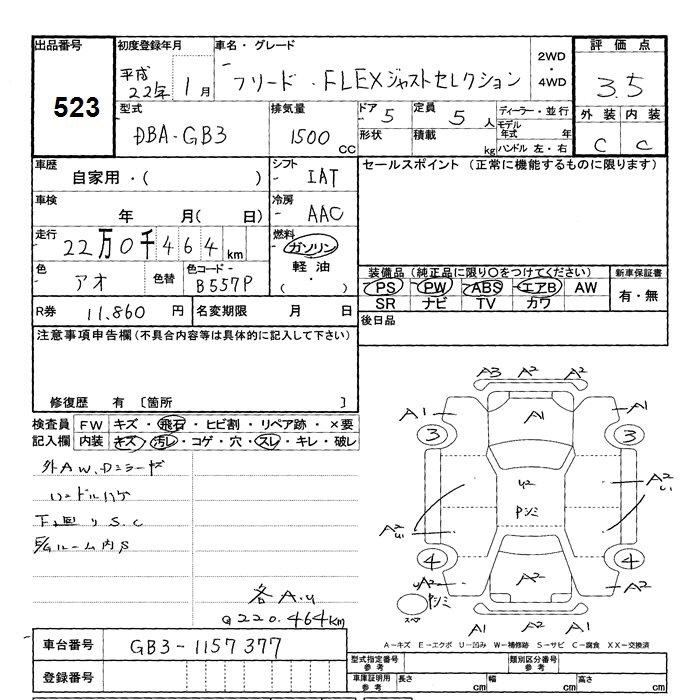 出品番号
523
初度登録年月
平成 22年 1月
車名・グレード
フリード・FLEXジャストセレクション
2WD
・
4WD
評価点
3.5
外装 内装
C C
型式
DBA-GB3
排気量
1500 CC
ドア 5
形状
定員 5人
積載 kg
ディーラー・並行
モデル年式 年
ハンドル 左・右
車歴
自家用・( )
シフト
- IAT
セールスポイント (正常に機能するものに限ります)
車検
年 月( 日)
冷房
- AAC
走行
22万0千464km
燃料
ガソリン
軽油
( ・ )
色
アオ
色替
色コード
B557P
装備品 (純正品に限り○をつけてください)
PS PW ABS エアB AW
SR ナビ TV カワ
新車保証書
有・無
R券 11,860円
名変期限 月 日
後日品
注意事項申告欄 (不具合内容等は具体的に記入して下さい)
修復歴 有 〔箇所 〕
検査員記入欄
FW キズ・飛石・ヒビ割・リペア跡・×要
内装 キズ・汚レ・コゲ・穴・スレ・キレ・破レ
外AW、Dミラーキズ
ハンドルハゲ
下廻りS.C
E/Gルーム内S
各A.U
Q220.464km
A3 A2 A2
A1 A1 A1
3 3
U2
Pシミ
A2
4 4
UA2 A2 A2
Pシミ
スペア
A1 A2 A1
A－キズ E－エクボ U－凹み W－補修跡 S－サビ C－腐食 XX－交換済
車台番号 GB3-1157377
登録番号
型式指定番号 参考
類別区分番号 参考
車庫証明用 参考
長さ cm 幅 cm 高さ cm